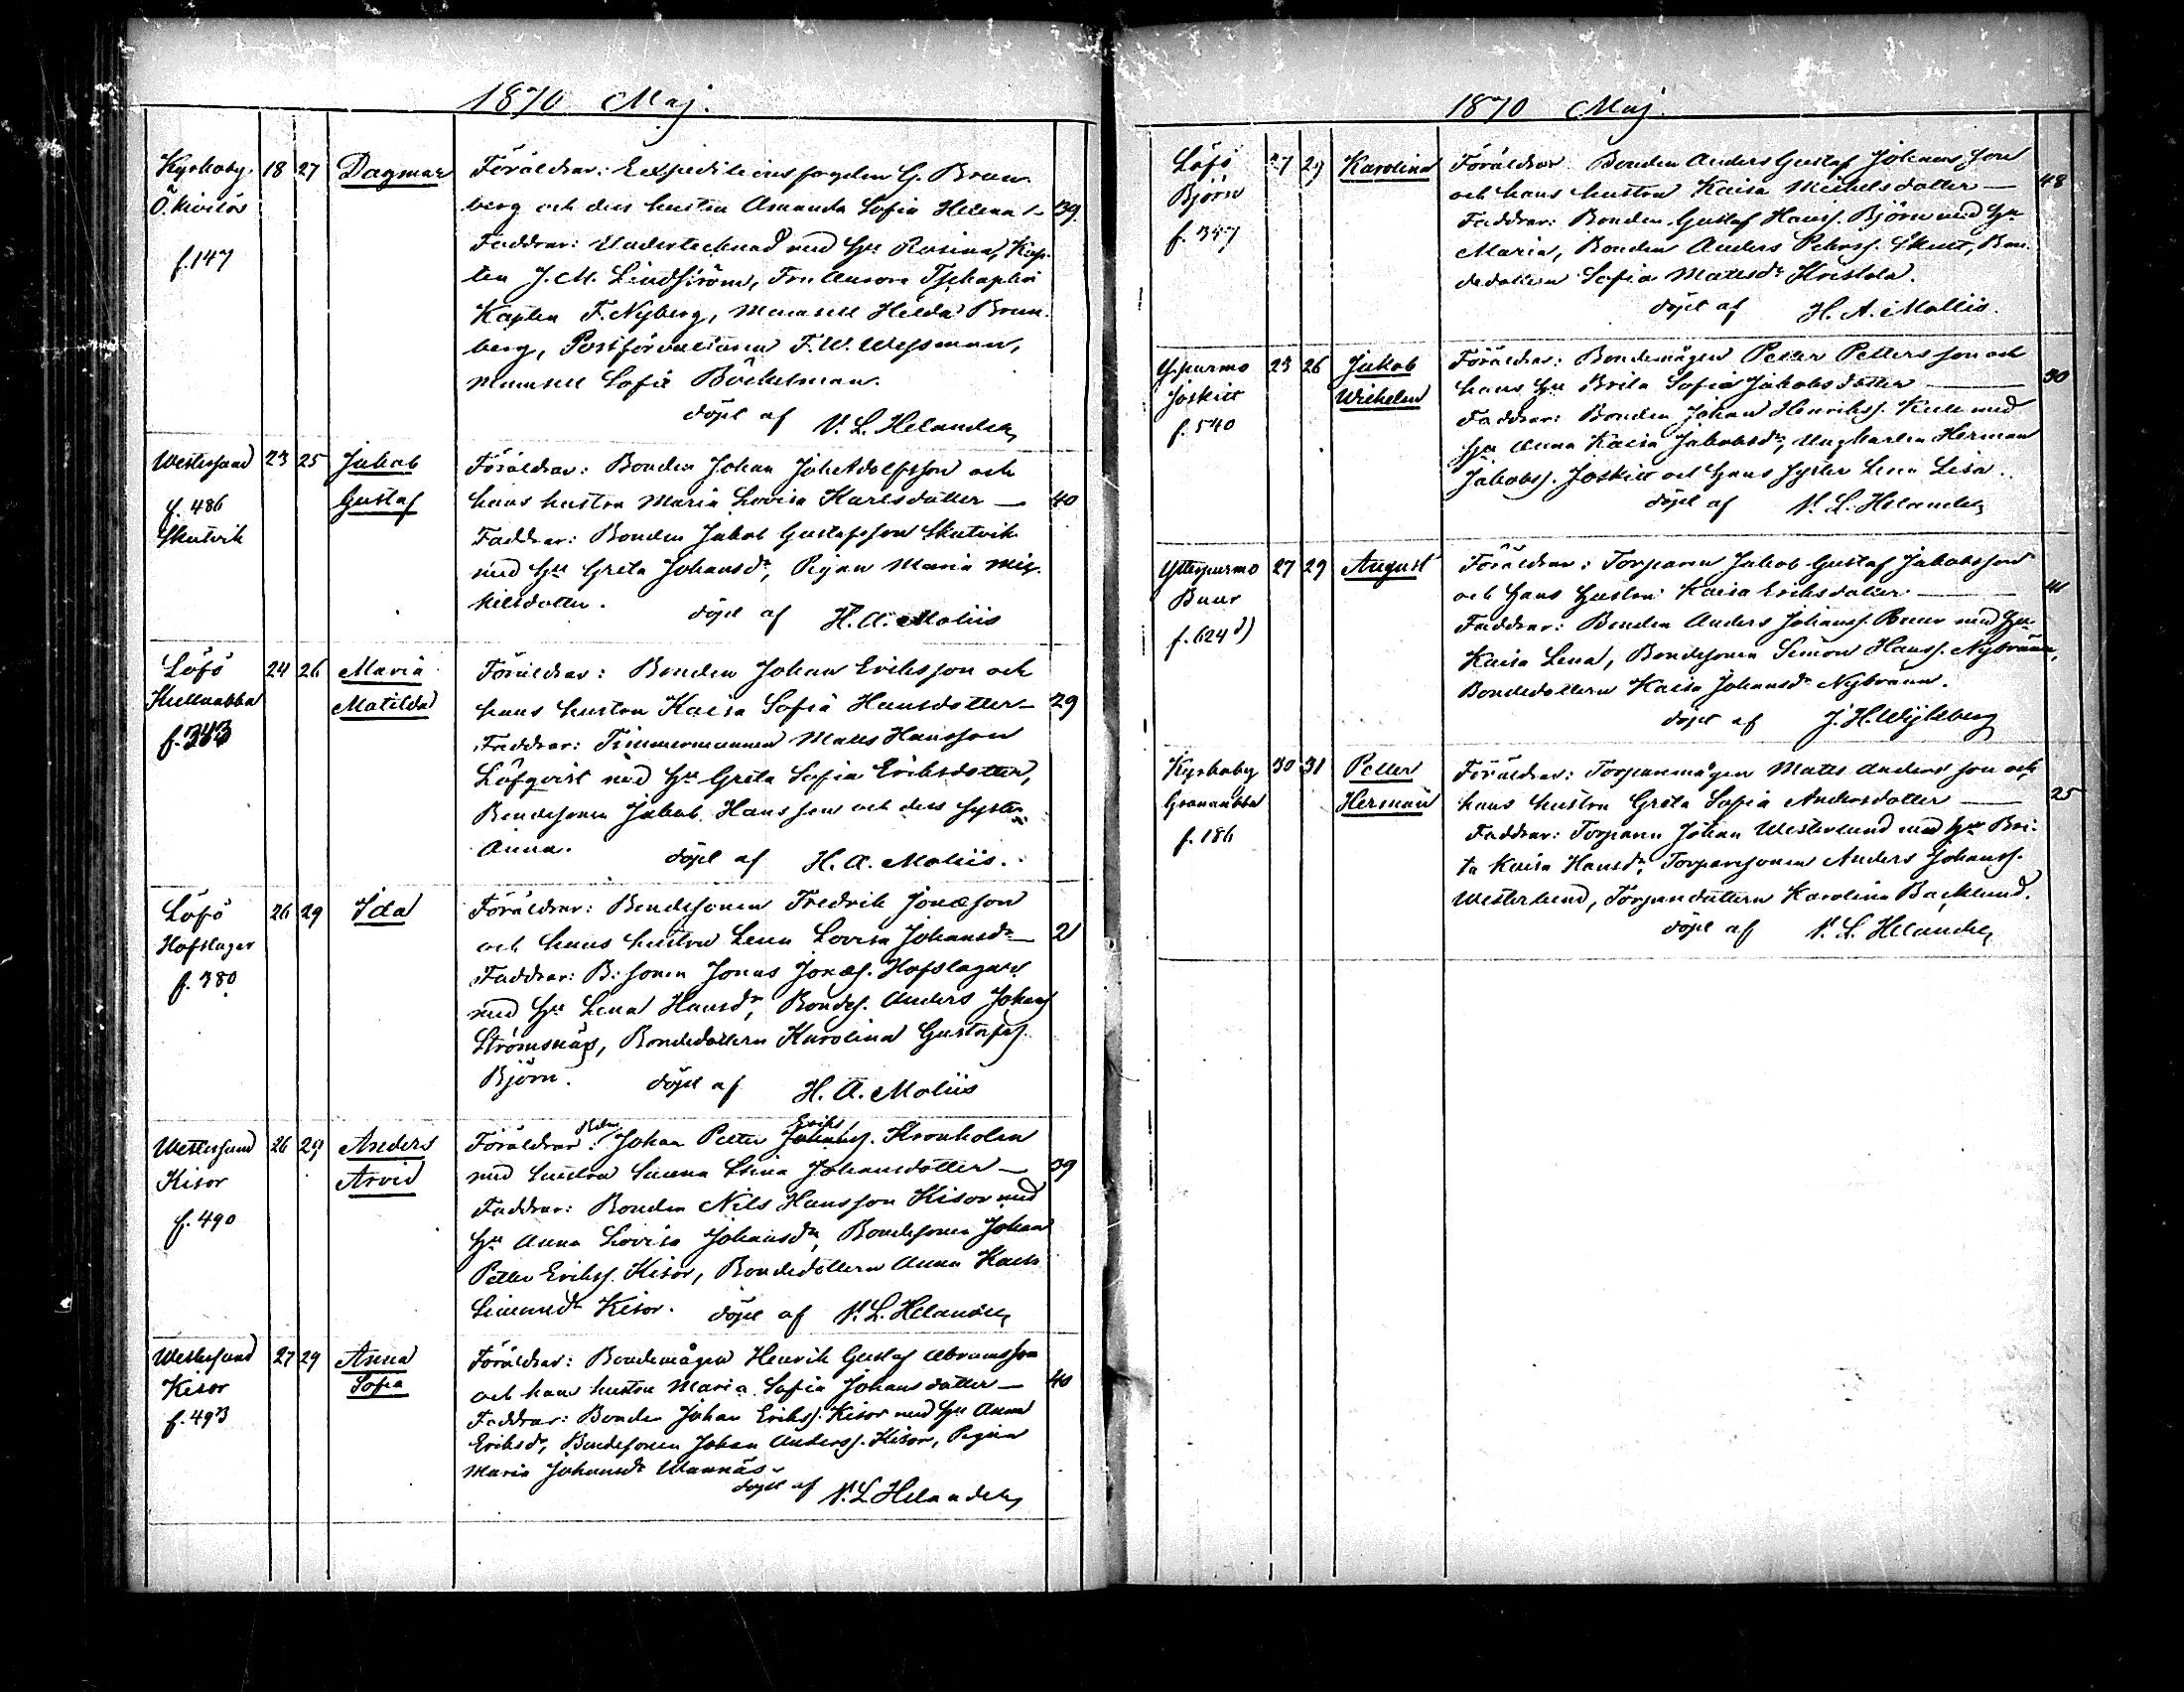 1870 Maj.
Kyrkoby 18 27 Dagmar Föräldrar: Expeditionsfogden G. Brun-
berg och dess hustru Amanda Sofia Helena 39.
f. 147
Faddrar: Undertecknad med Hu Rosina, Kap-
ten J. M. Lindström, Fru Aurora
Kapten F. Nyberg, Mamsell Hilda Brun-
berg, Postförvaltaren F. W. Wessman,
Mamsell Sofie Böckelman.
döpt af V. L. Helander
Westersund 23 25 Jakob Föräldrar: Bonden Johan Joh Adolfsson och
f. 486 Gustaf hans hustru Maria Lovisa Karlsdotter — 40
Skutvik Faddrar: Bonden Jakob Gustafsson Skutvik
med Hu Greta Johansdr, Pigan Maria Mic-
kelsdotter. döpt af H. A. Moliis
Löfö 24 26 Maria Föräldrar: Bonden Johan Eriksson och
Kullnabba Matilda hans hustru Kaisa Sofia Hansdotter — 29
f. 343 Faddrar: Timmermannen Matts Hansson
Löfqvist med Hu Greta Sofia Eriksdotter,
Bondesonen Jakob Hansson och dess syster
Anna. döpt af H. A. Moliis.
Löfö 26 29 Ida Föräldrar: Bondesonen Fredrik Jonasson
Hofslagar och hans hustru Lena Lovisa Johansdr — 21
f. 380 Faddrar: B:sonen Jonas Jonass. Hofslagare
med Hu Lena Hansdr, Bondes. Anders Johans
Strömsnäs, Bondedottern Karolina Gustafsd.
Björn. döpt af H. A. Moliis
Westersund 26 29 Anders Föräldrar: Johan Petter Eriks Johanss. Kronholm
Kisor Arvid med hustru Sanna Stina Johansdotter — 39
f. 490 Faddrar: Bonden Nils Hansson Kisor med
Hu Anna Lovisa Johansdr, Bondesonen Johan
Petter Erikss. Kisor, Bondedottern Anna Kaisa
Simonsdr Kisor. döpt af V. L. Helander
Westersund 27 29 Anna Föräldrar: Bondemågen Henrik Gustaf Abramsson
Kisor Sofia och hans hustru Maria Sofia Johansdotter — 40
f. 493 Faddrar: Bonden Johan Erikss. Kisor med Hu Anna
Eriksdr, Bondesonen Johan Anderss. Kisor, Pigan
Maria Johansdr
döpt af V. L. Helander
1870 Maj.
Löfö 27 29 Karolina Föräldrar: Bonden Anders Gustaf Johansson
Björn och hans hustru Kaisa Mickelsdotter — 48
f. 347 Faddrar: Bonden Gustaf Hanss. Björn med Hu
Maria, Bonden Anders Peterss. Skut, Bon-
dedottern Sofia Mattsdr
döpt af H. A. Moliis.
Ypurmo 23 26 Jakob Föräldrar: Bondemågen Petter Pettersson och
Joskitt Wilhelm hans Hu Brita Sofia Jakobsdotter — 30
f. 540 Faddrar: Bonden Johan Henrikss. med
Hu Anna Kaisa Jakobsdr, Ungkarlen Herman
Jakobss. Joskitt och hans syster Lena Lisa.
döpt af V. L. Helander
Ytterpurmo 27 29 August Föräldrar: Torparen Jakob Gustaf Jakobsson
Buur och hans hustru Kaisa Eriksdotter — 41
f. 624 d) Faddrar: Bonden Anders Johanss. Buur med Hu
Kaisa Lena, Bondesonen Simon Hanss. Nybränn,
Bondedottern Kaisa Johansdr Nybränn.
döpt af
Kyrkoby 30 31 Petter Föräldrar: Torparemågen Matts Andersson och
Granabba Herman hans hustru Greta Sofia Andersdotter — 25
f. 186 Faddrar: Torparen Johan Westerlund med Hu Bri-
ta Kaisa Hansdr, Torparesonen Anders Johanss.
Westerlund, Torparedottern Karolina Backlund.
döpt af V. L. Helander